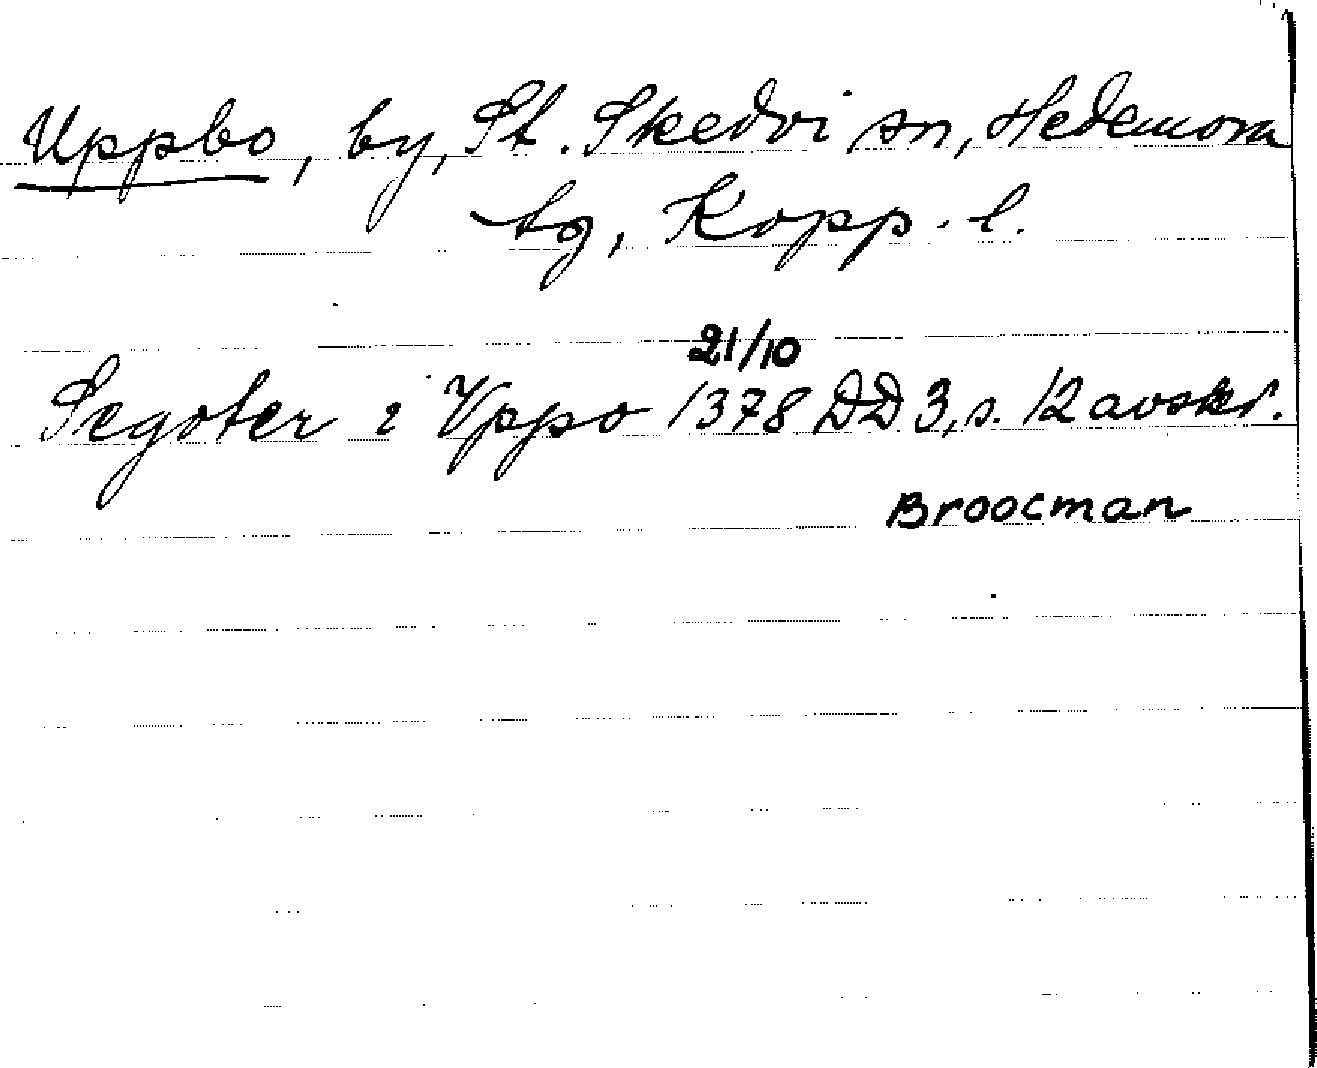 Uppbo, by, St. Skedvi sn, Hedemora
tg, Kopp. l.
21/10
Segoter i Vppo 1378 DD 3, s. 12 avskr.
Broocman